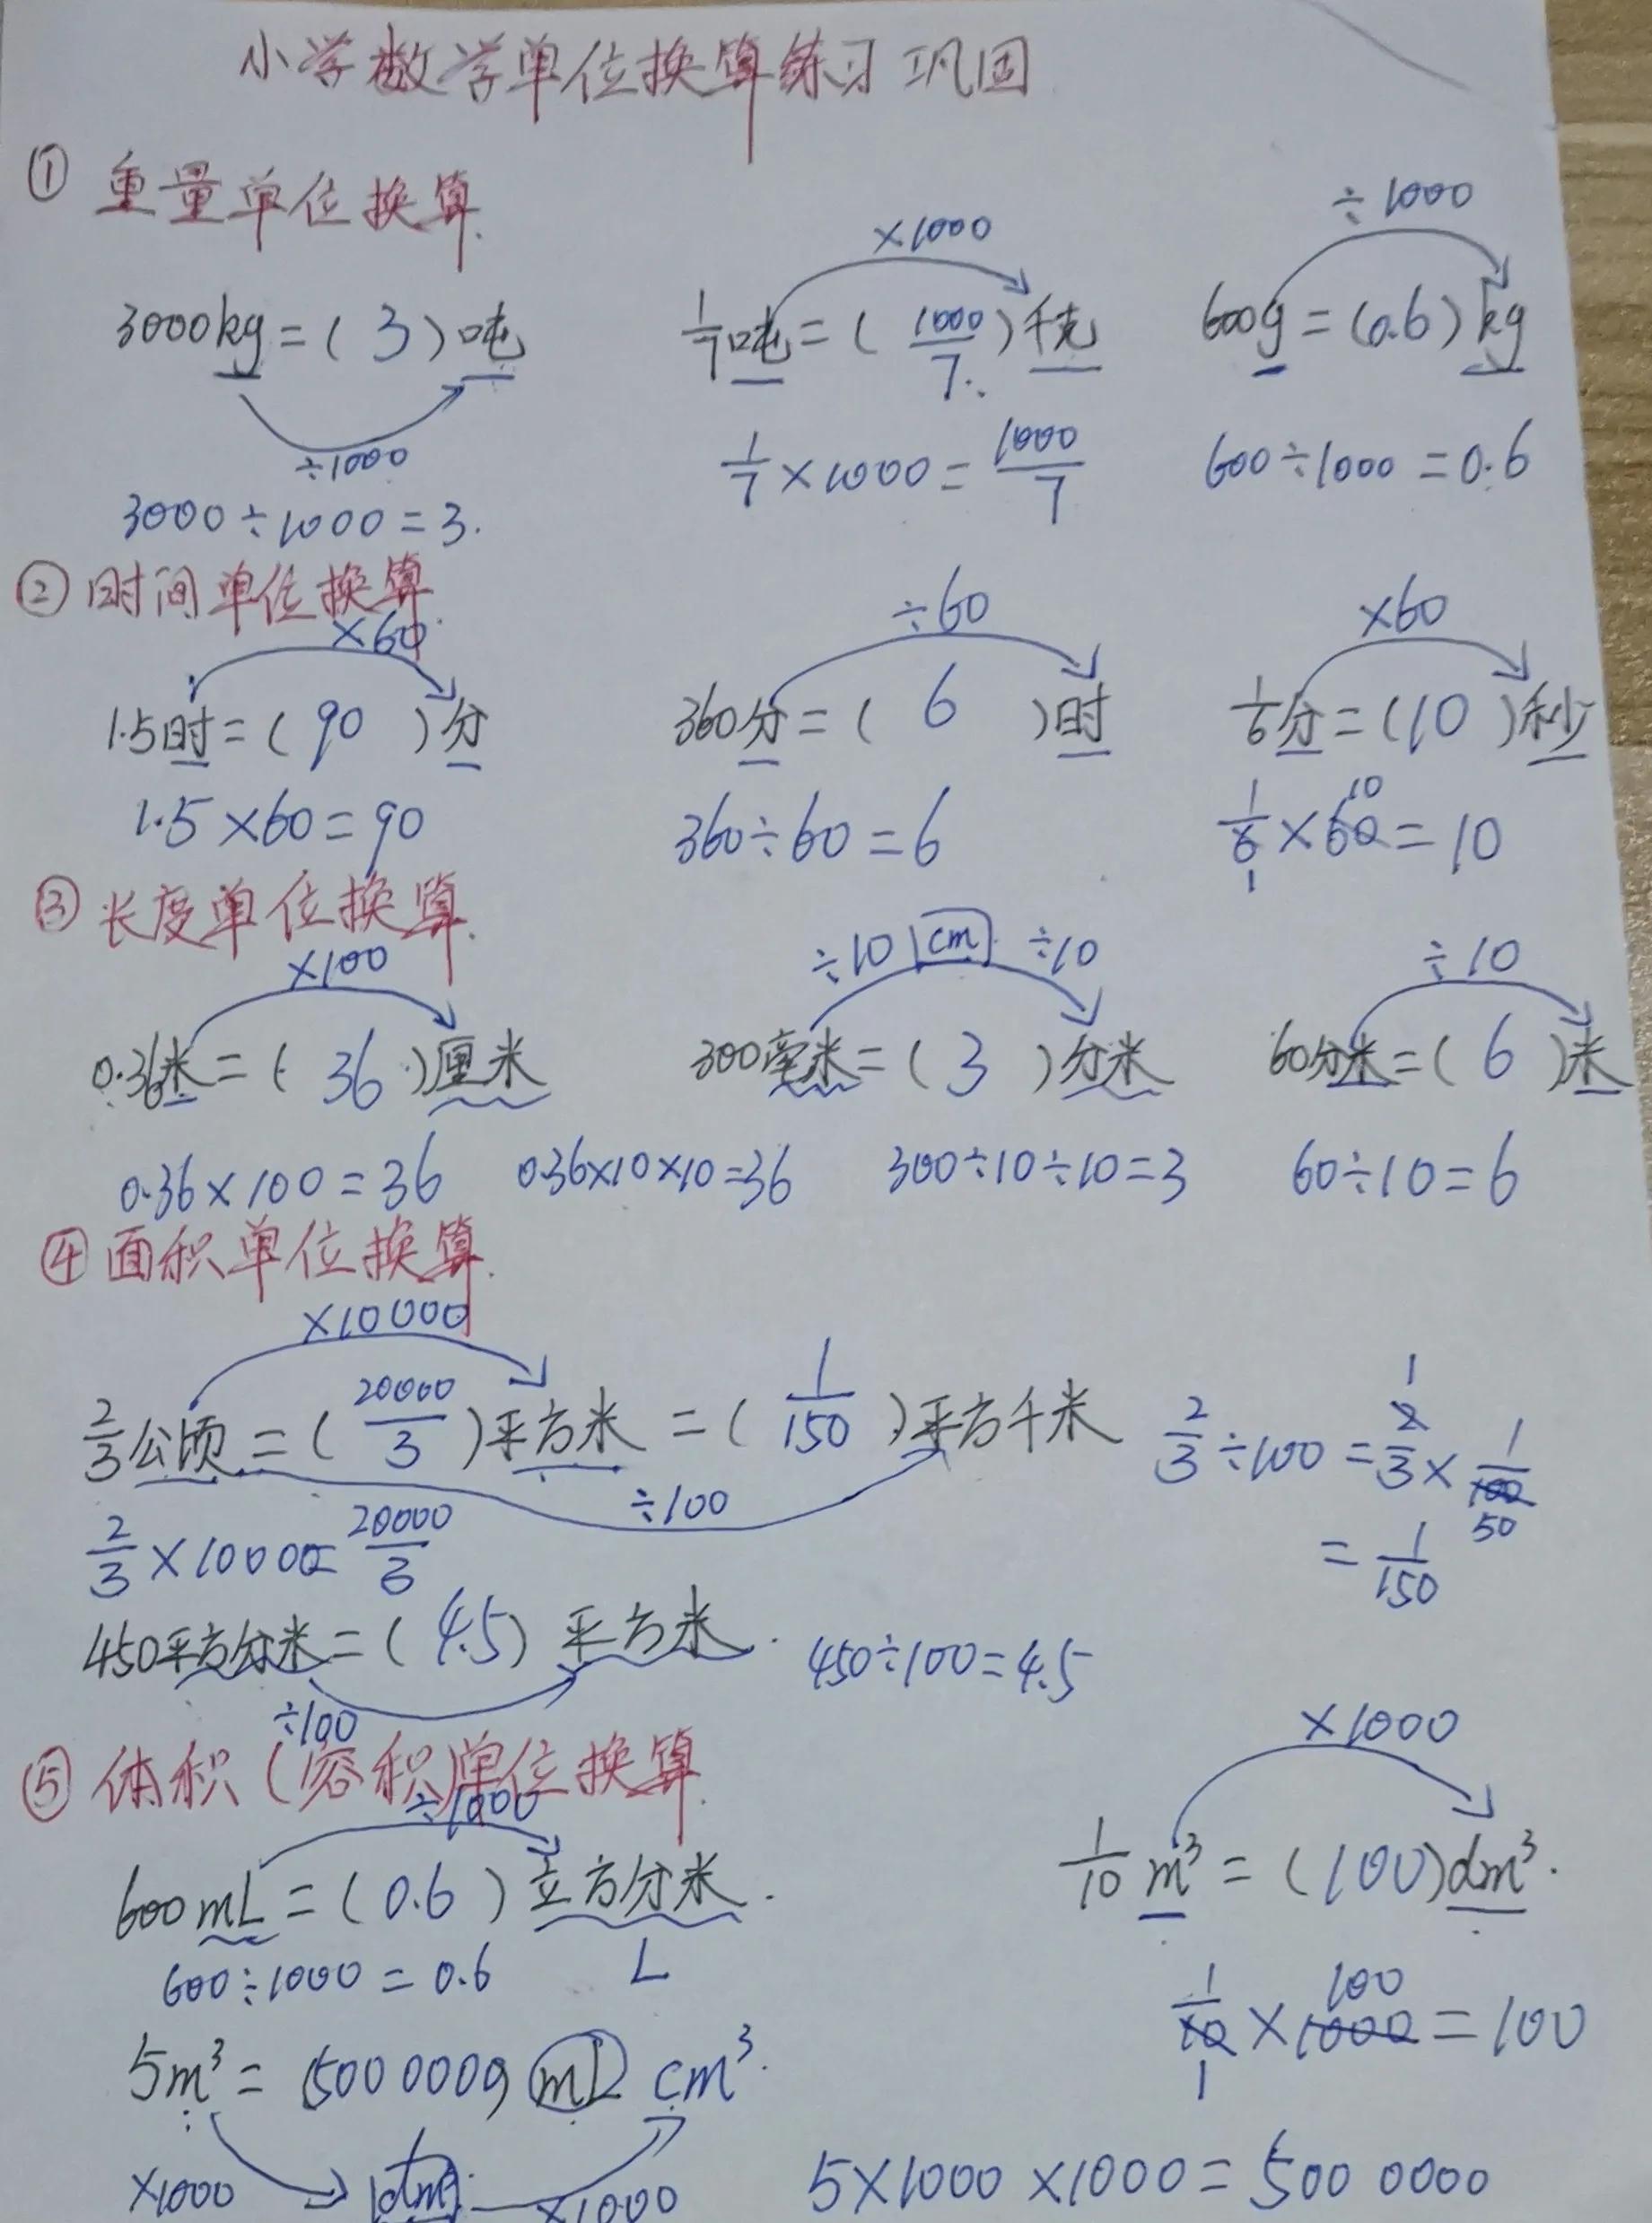 小学数学单位换算练习巩固
① 重量单位换算
×1000 ÷1000
3000kg=(3)吨 1/7吨=(1000/7)千克 600g=(0.6)kg
÷1000
3000÷1000=3. 1/7×1000=1000/7 600÷1000=0.6
② 时间单位换算
×60 ÷60 ×60
1.5时=(90)分 360分=(6)时 1/6分=(10)秒
1.5×60=90 360÷60=6 1/6×60=10
10
1
③ 长度单位换算
×100 ÷10 cm ÷10 ÷10
0.36米=(36)厘米 300毫米=(3)分米 60分米=(6)米
0.36×100=36 0.36×10×10=36 300÷10÷10=3 60÷10=6
④ 面积单位换算
×10000
2/3公顷=(20000/3)平方米=(1/150)平方千米 2/3÷100=2/3×1/100
1
50
÷100
2/3×10000=20000/3 =1/150
450平方分米=(4.5)平方米. 450÷100=4.5
÷100
⑤ 体积(容积)单位换算
÷1000 ×1000
600mL=(0.6)立方分米. 1/10m³=(100)dm³.
600÷1000=0.6 L 1/10×1000=100
100
1
5m³=(5000000)mL cm³.
×1000 dm³ ×1000 5×1000×1000=5000000